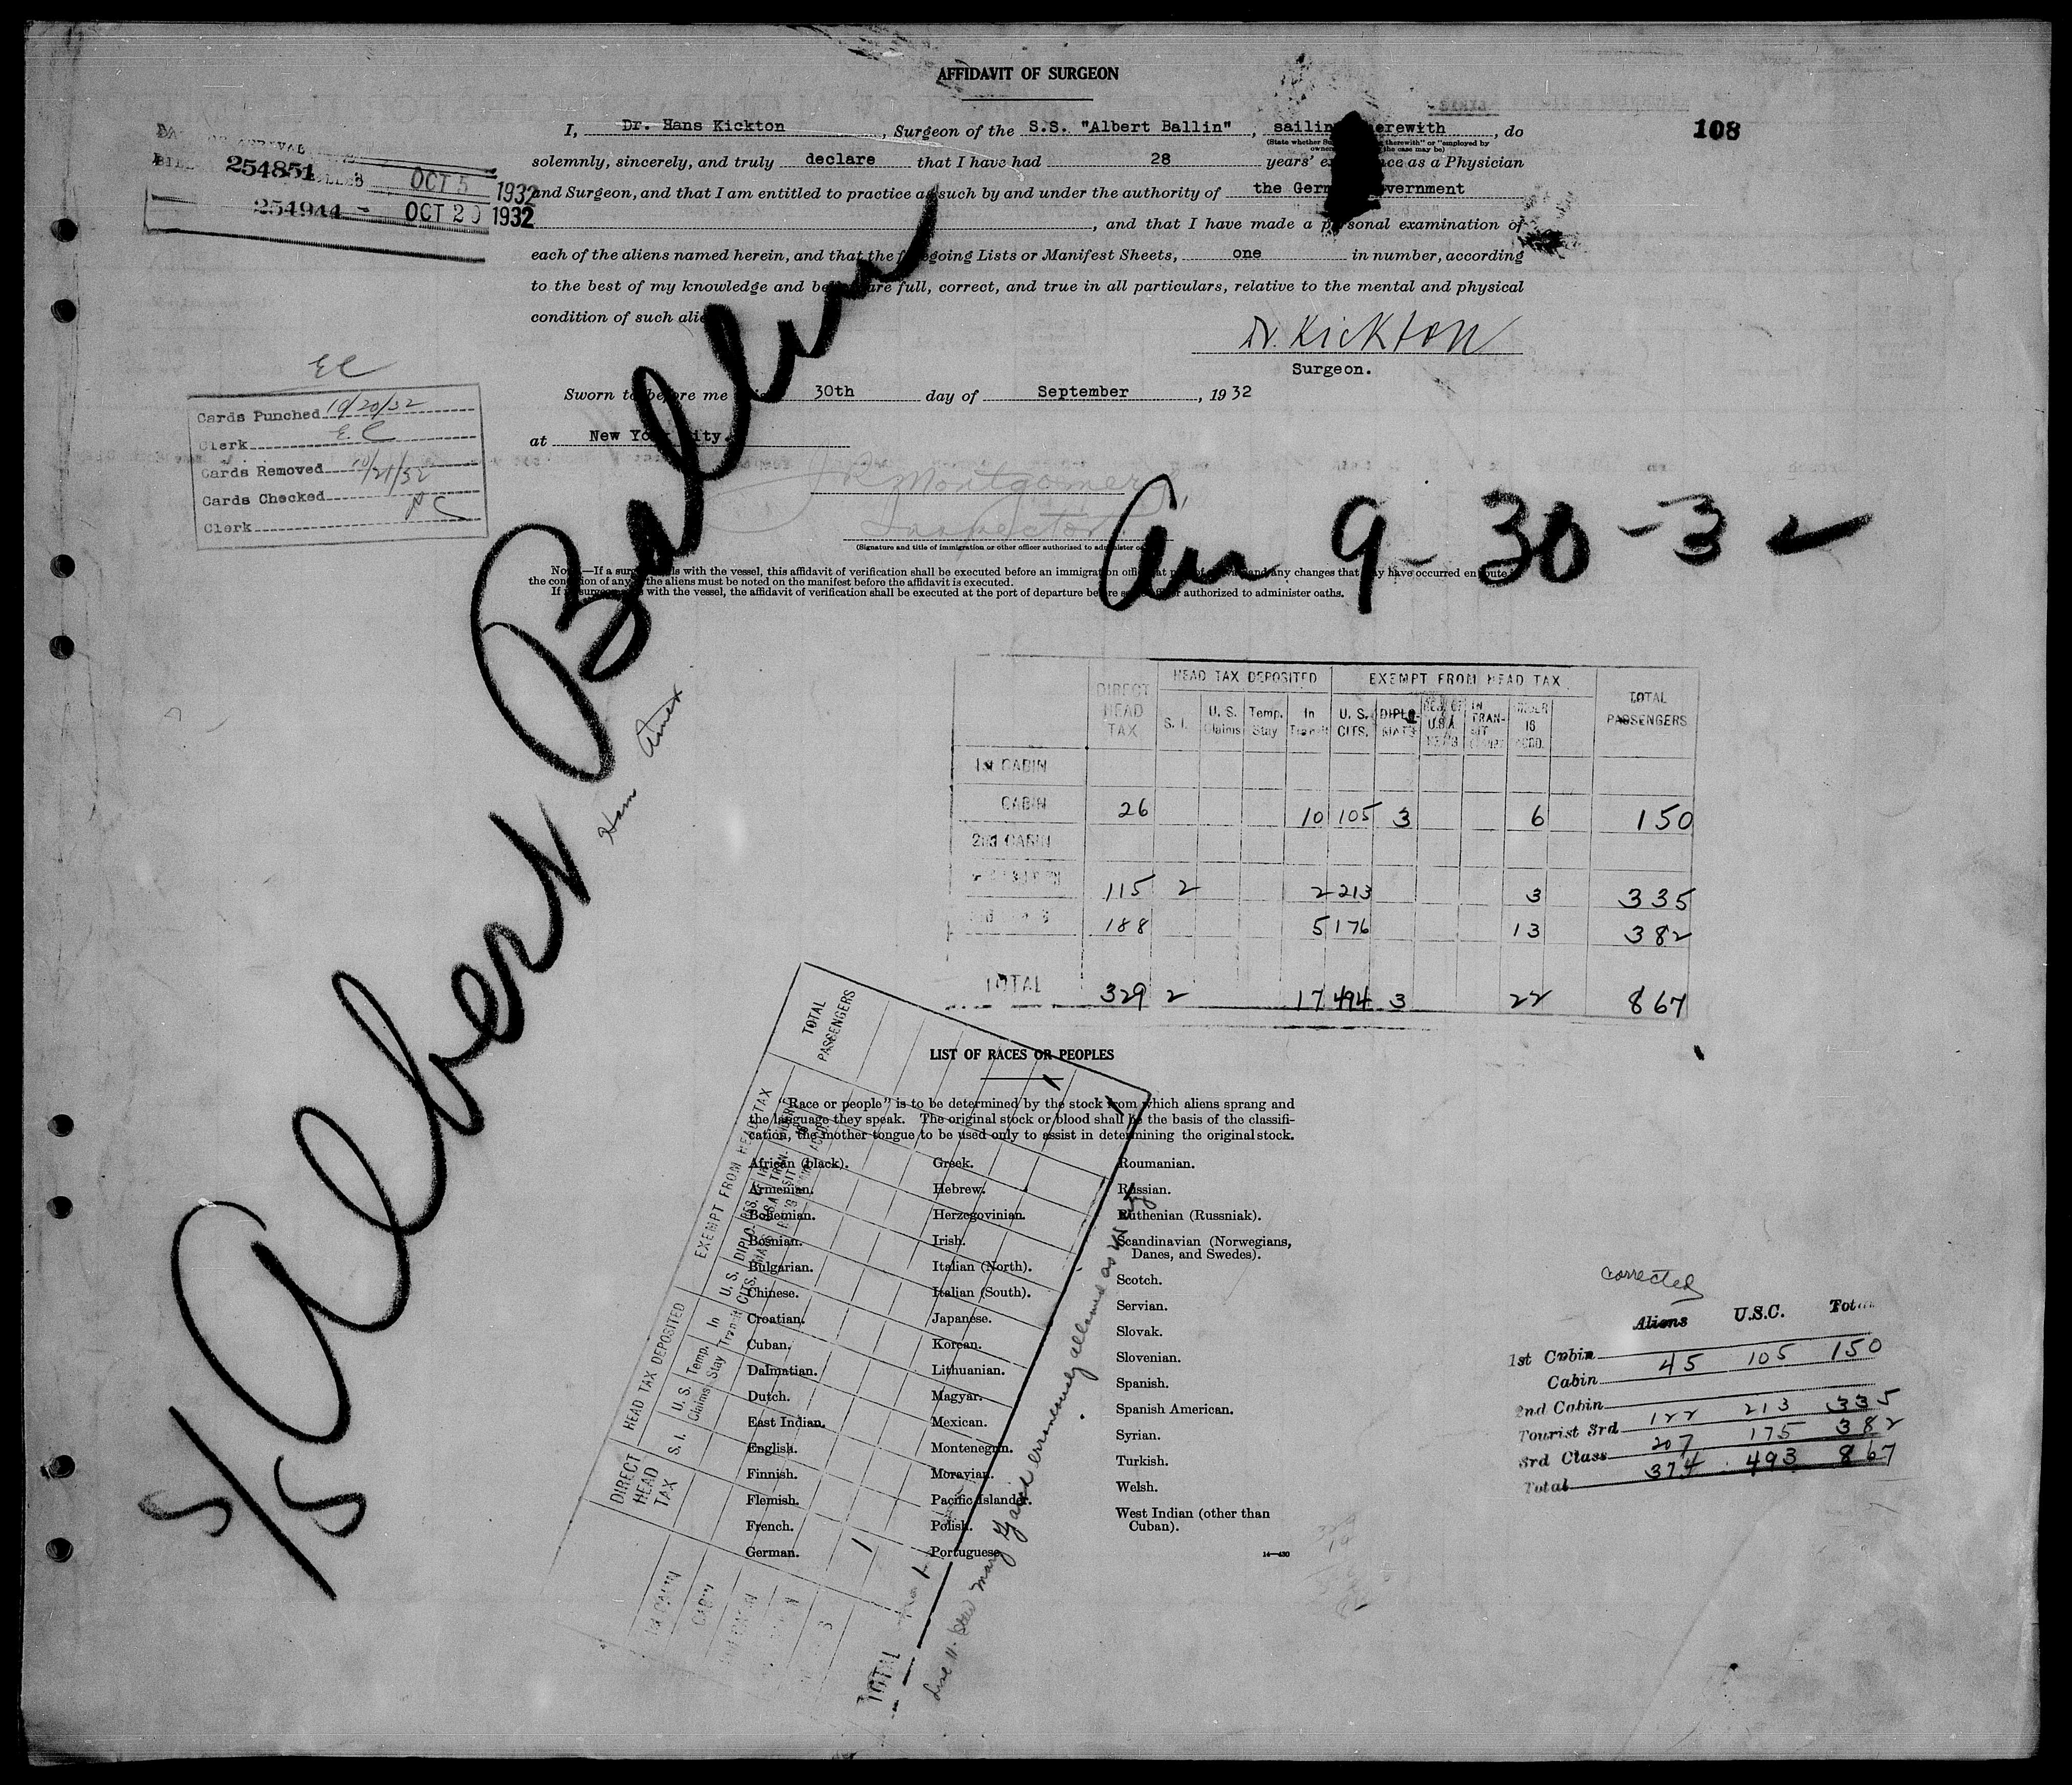 AFFIDAVIT OF SURGEON
108
I, Dr. Hans Kickton, Surgeon of the S.S. "Albert Ballin", sailing herewith, do
solemnly, sincerely, and truly declare that I have had 28 years' experience as a Physician
and Surgeon, and that I am entitled to practice as such by and under the authority of the German Government
, and that I have made a personal examination of
each of the aliens named herein, and that the foregoing Lists or Manifest Sheets, one in number, according
to the best of my knowledge and belief are full, correct, and true in all particulars, relative to the mental and physical
condition of such aliens
Dr. Kickton
Surgeon.
Sworn to before me 30th day of September, 1932
at New York City.
R Montgomery
Inspector
(Signature and title of immigration or other officer authorized to administer oaths)
254851 OCT 5 1932
254944 - OCT 20 1932
EC
Cards Punched 10/20/32
Clerk E. C
Cards Removed 10/21/32
Cards Checked
Clerk
S/S Albert Ballin
Ham Amer
Arr 9-30-32
NOTE.—If a surgeon sails with the vessel, this affidavit of verification shall be executed before an immigration officer at port of arrival and any changes that may have occurred en route in
the condition of any of the aliens must be noted on the manifest before the affidavit is executed.
If no surgeon sails with the vessel, the affidavit of verification shall be executed at the port of departure before some officer authorized to administer oaths.
HEAD TAX DEPOSITED EXEMPT FROM HEAD TAX
DIRECT HEAD TAX S. I. U. S. Claims Temp. Stay In Transit U. S. CITS. DIPLOMATS UNDER 16 ACCD. TOTAL PASSENGERS
1st CABIN
CABIN 26 10 105 3 6 150
2nd CABIN
115 2 2 213 3 335
188 5 176 13 382
TOTAL 329 2 17 494 3 22 867
LIST OF RACES OR PEOPLES
"Race or people" is to be determined by the stock from which aliens sprang and
the language they speak. The original stock or blood shall be the basis of the classifi-
cation, the mother tongue to be used only to assist in determining the original stock.
African (black).
Armenian.
Bohemian.
Bosnian.
Bulgarian.
Chinese.
Croatian.
Cuban.
Dalmatian.
Dutch.
East Indian.
English.
Finnish.
Flemish.
French.
German.
Greek.
Hebrew.
Herzegovinian.
Irish.
Italian (North).
Italian (South).
Japanese.
Korean.
Lithuanian.
Magyar.
Mexican.
Montenegrin.
Moravian.
Pacific Islander.
Polish.
Portuguese.
Roumanian.
Russian.
Ruthenian (Russniak).
Scandinavian (Norwegians,
Danes, and Swedes).
Scotch.
Servian.
Slovak.
Slovenian.
Spanish.
Spanish American.
Syrian.
Turkish.
Welsh.
West Indian (other than
Cuban).
14—430
TOTAL PASSENGERS
EXEMPT FROM HEAD TAX
HEAD TAX DEPOSITED
DIRECT HEAD TAX
S. I.
U. S. Claims
Temp. Stay
In Transit
U. S. CITS.
1st CABIN
CABIN
2nd CABIN
TOTAL
corrected
Aliens U.S.C. Total
1st Cabin
Cabin 45 105 150
2nd Cabin
Tourist 3rd 122 213 335
3rd Class 207 175 382
Total 374 493 867